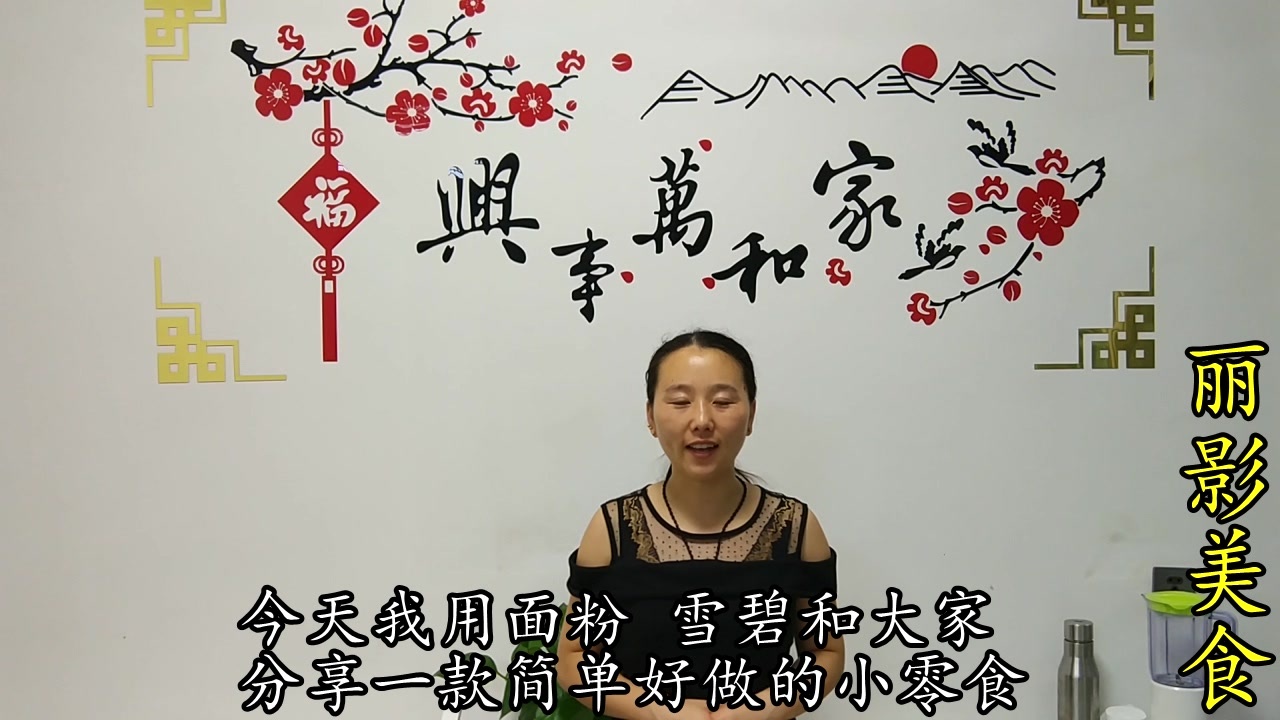 福
家和萬事興
今天我用面粉 雪碧和大家
分享一款简单好做的小零食
丽影美食